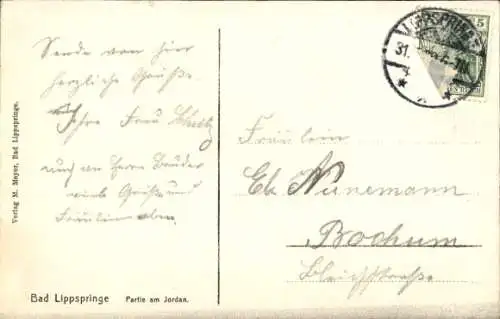 Sende von hier
herzliche Grüße.
Ihre Frau
auch an Herrn Bruder
viele Grüße
Fräulein
Verlag M. Meyer, Bad Lippspringe.
Bad Lippspringe Partie am Jordan.
LIPPSPRINGE
31.
5
Fräulein
El. Nünemann
Bochum
Bleichstraße